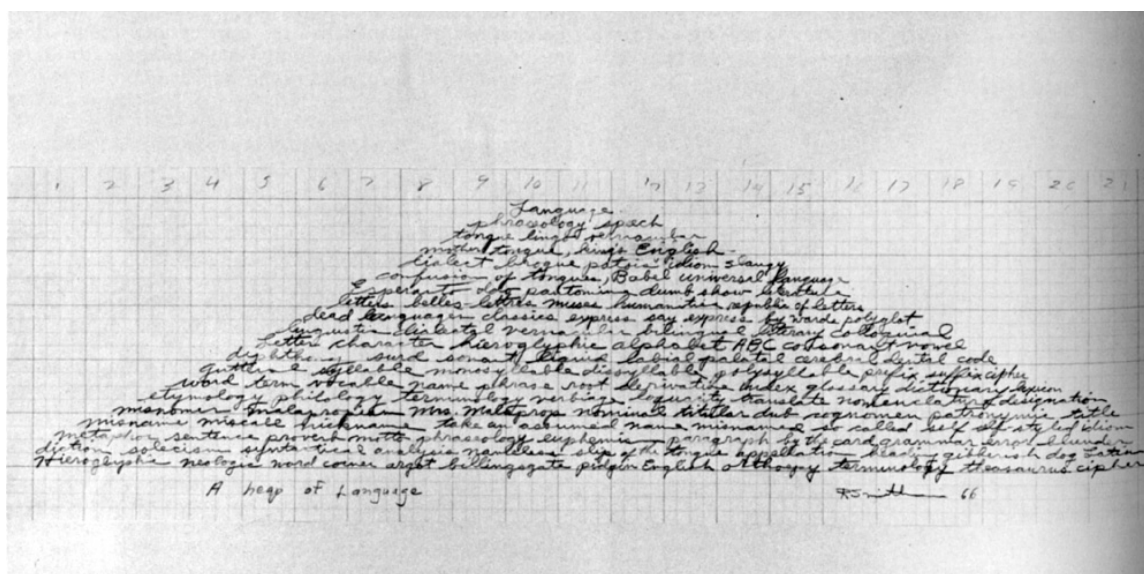 1 2 3 4 5 6 7 8 9 10 11 12 13 14 15 16 17 18 19 20 21
Language
phraseology speech
tongue lingo vernacular
mother tongue, king's English
dialect brogue patois idiom slangy
confusion of tongues, Babel universal language
Esperanto dog pantomime dumb show literature
letters belles-lettres muses humanities republic of letters
dead languages classics express say express by words polyglot
linguistic dialectal vernacular bilingual literary colloquial
letter character hieroglyphic alphabet ABC consonant vowel
diphthong surd sonant liquid labial palatal cerebral dental code
guttural syllable monosyllable dissyllable polysyllable prefix suffix cipher
word term vocable name phrase root derivative index glossary dictionary lexicon
etymology philology terminology verbiage loquacity translate nomenclature designation
misnomer malapropism Mrs. Malaprop nominal titular dub cognomen patronymic title
misname miscall nickname take an assumed name misnamed so called self styled idiom
metaphor sentence proverb motto phraseology euphemism paragraph by the card grammar error blunder
diction solecism syntactical analysis nameless slip of the tongue appellation heading gibberish dog Latin
Hieroglyphic neologic word coiner argot billingsgate pidgin English orthoepy terminology thesaurus cipher
A heap of Language
RSmithson 66